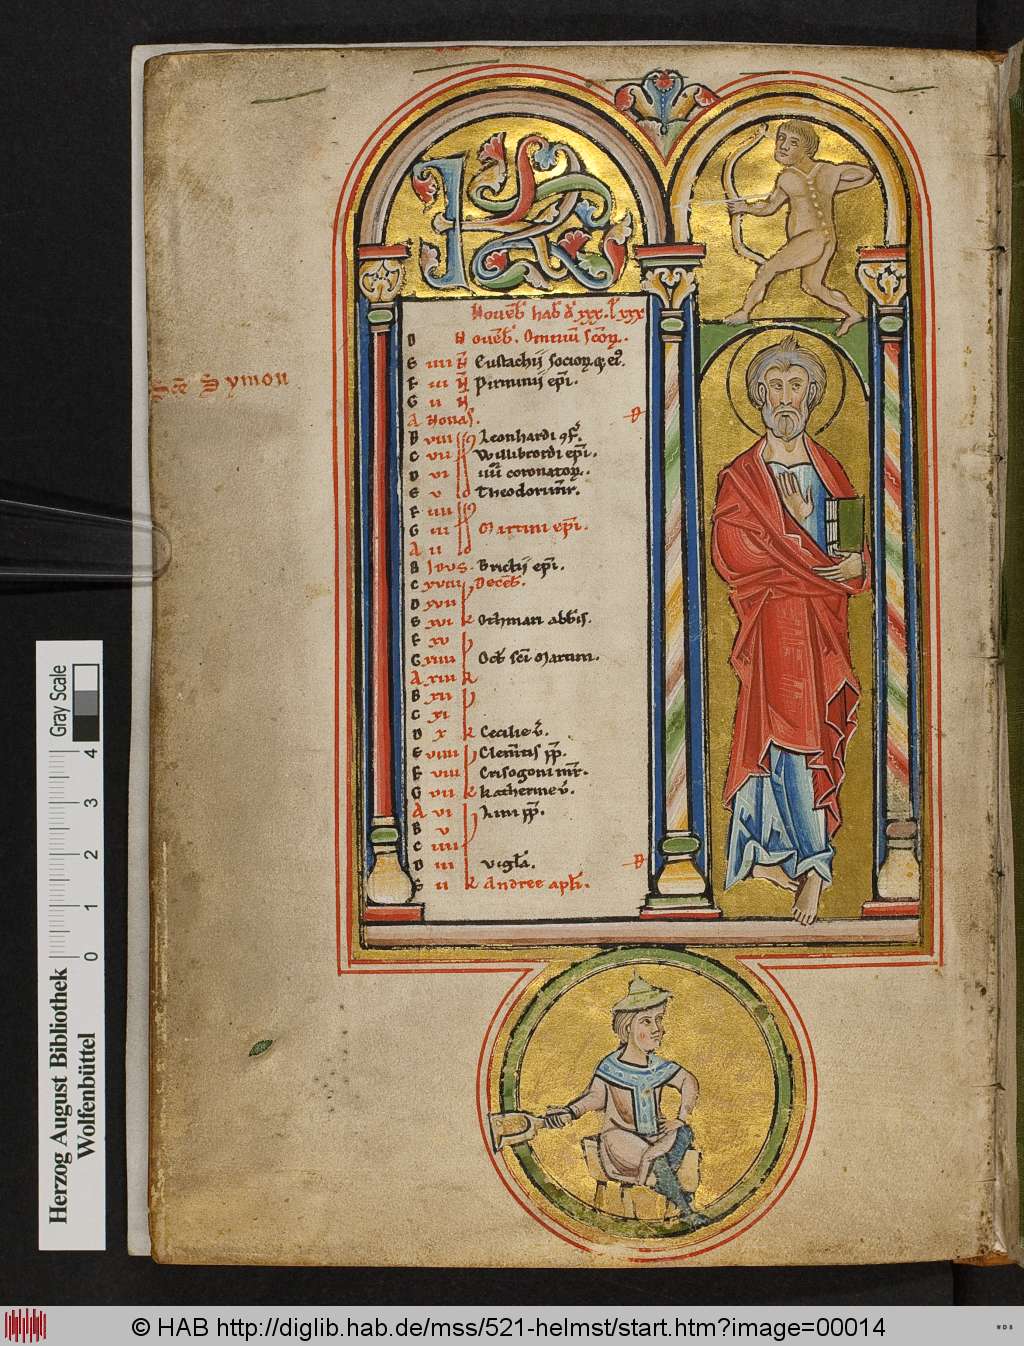 KL
Nouēb hab d xxx. l xxx
D N ouēb. Omniū scōꝝ.
E iiii N Eustachij socioꝝ.qꝫ ei9.
F iii N Pirminij epī.
G ii N
A Nonas. D
B viii Leonhardi ꝯf.
C vii Willibrordi epī.
D vi iiiior coronatoꝝ.
E v id Theodori mr.
F iiii
G iii Martini epī.
A ii id
B Idus. Bricij epī.
C xviii Decēb.
D xvii
E xvi k Othmari abbis.
F xv
G xiiii Oct sci Martini.
A xiii k
B xii
C xi
D x k Cecilie v.
E viiii Clemētis pp.
F viii Crisogoni mr.
G vii k Katherine v.
A vi Lini pp.
B v
C iiii
D iii vigla. D
E ii k Andree apli.
Symon
Gray Scale
0 1 2 3 4
Herzog August Bibliothek
Wolfenbüttel
© HAB http://diglib.hab.de/mss/521-helmst/start.htm?image=00014